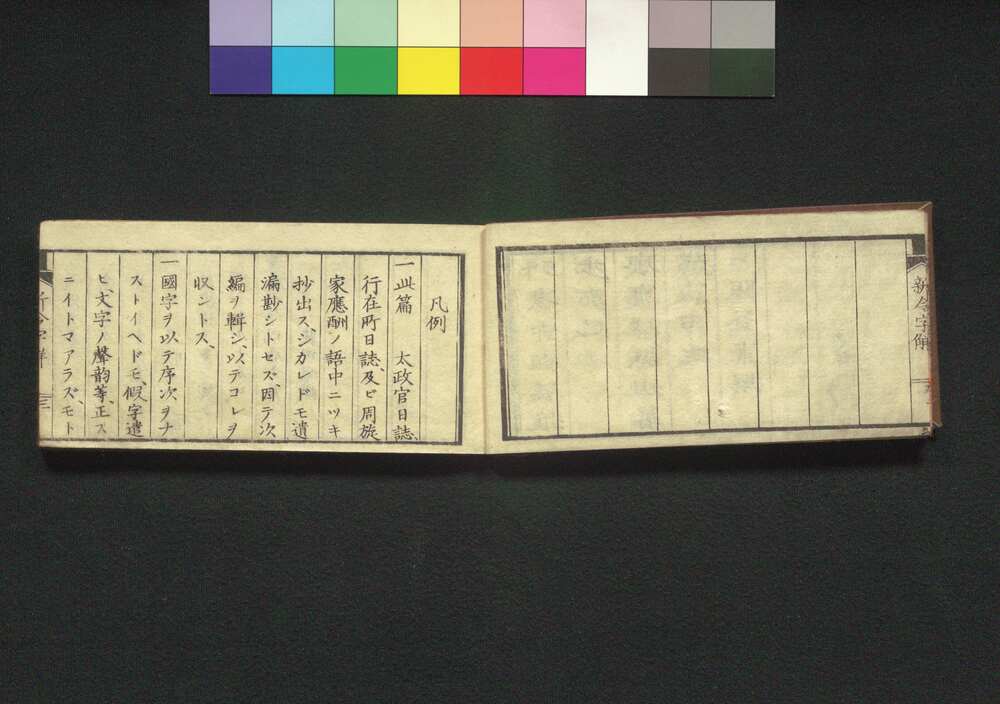 新令字解
凡例
一此篇 太政官日誌
行在所日誌、及ビ周旋
家應酬ノ語中ニツキ
抄出ス、シカレドモ遺
漏尠シトセズ、因テ次
編ヲ輯シ、以テコレヲ
収ントス、
一國字ヲ以テ序次ヲナ
ストイヘドモ、假字遣
ヒ、文字ノ聲韵等、正ス
ニイトマアラズ、モト